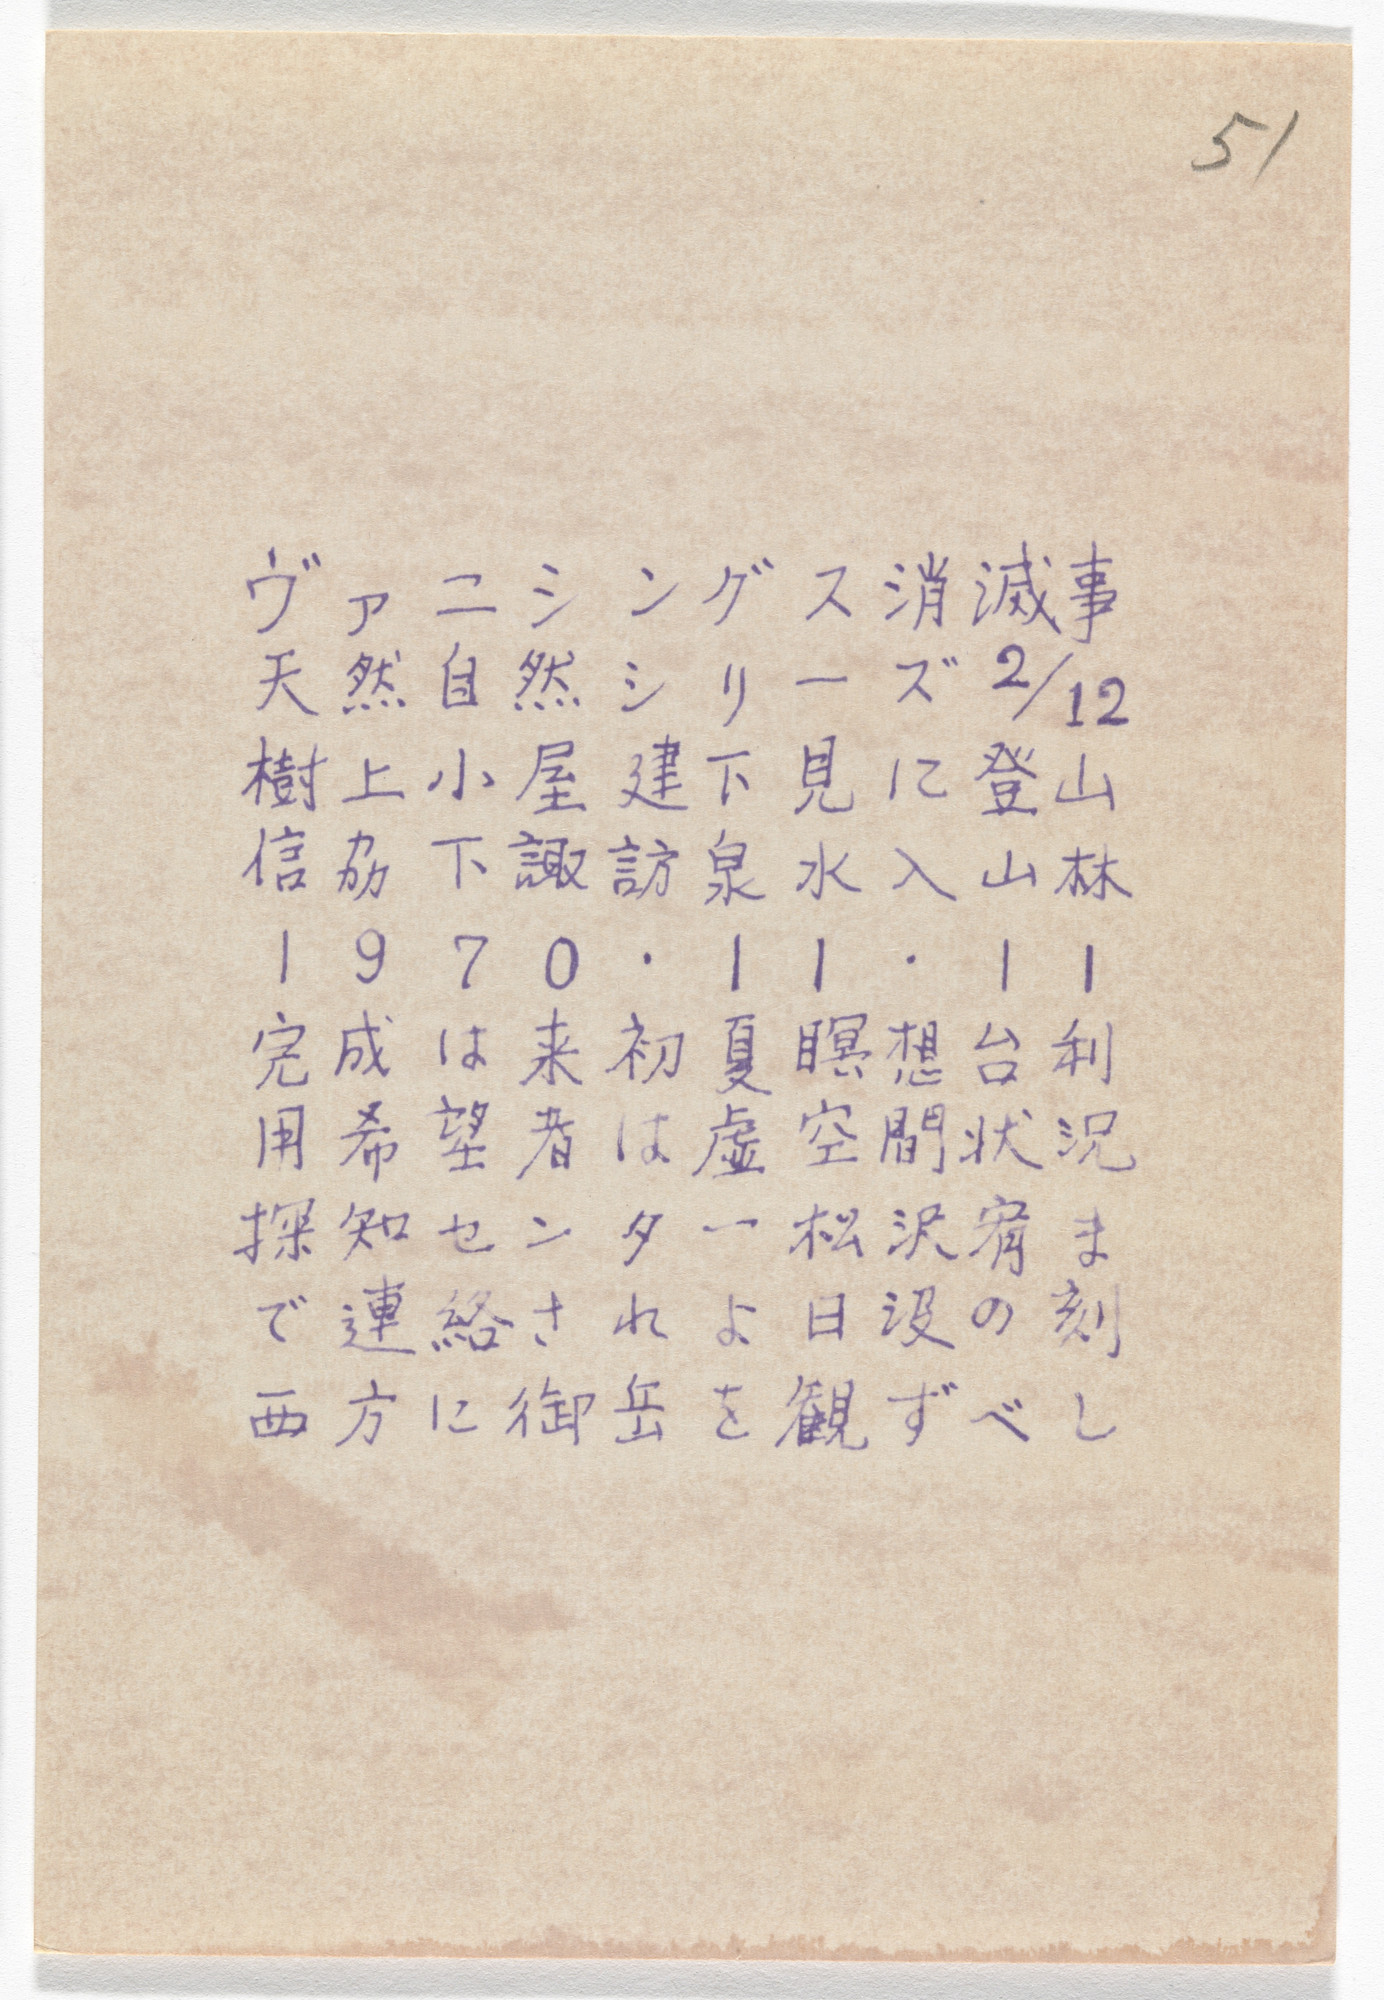 51
ヴァニシングス消滅事
天然自然シリーズ2/12
樹上小屋建下見に登山
信劦下諏訪泉水入山林
1970・11・11
完成は来初夏瞑想台利
用希望者は虚空間状況
探知センター松沢宥ま
で連絡されよ日没の刻
西方に御岳を観ずべし